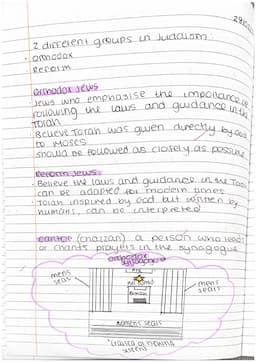 2 different groups in Judaism:
· Orthodox
· Reform
Orthodox Jews
Jews who emphasise the importance of
following the laws and guidance in the
Torah
· Believe Torah was given directly by God
to Moses
should be followed as closely as possible
Reform Jews:
· Believe the laws and guidance in the Torah
can be adapted for modern times
· Torah inspired by God but written by
humans, can be interpreted
cantor (chazzan) a person who leads
or chants prayers in the synagogue
Orthodox
Synagogue
mens
seats
mens
seats
womens seats